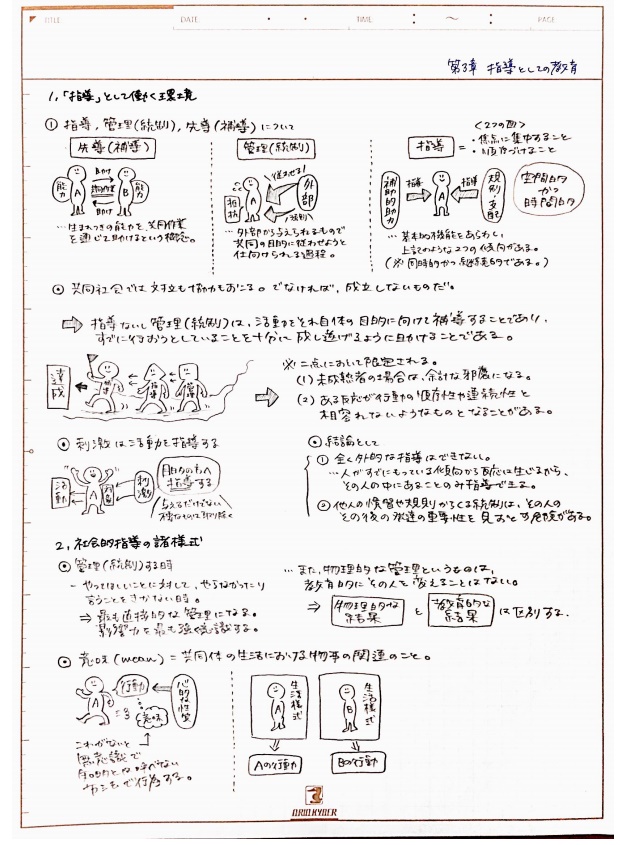 TITLE DATE ・ ・ TIME : ～ : PAGE
第3章 指導としての教育
1,「指導」として働く環境
① 指導, 管理(統制), 先導(補導)について
先導(補導)
能力 A 助け 共同作業 助け B 能力
… 生まれつきの能力を、共同作業
を通じて助けるという概念。
管理(統制)
従わせる!
抵抗 A 外部
規制
… 外部から与えられるもので
共同の目的に従わせようと
仕向けられる過程。
<2つの面>
指導 = ・焦点に集中すること
・順序づけること
補助的助力 指導 A 指導 規制・支配
空間的かつ時間的
… 基本的機能をあらわし、
上記のような2つの傾向がある。
(※同時的かつ継続的である。)
⊙ 共同社会では対立も協力もおこる。でなければ、成立しないものだ。
⇨ 指導ないし管理(統制)は、活動をそれ自体の目的に向けて補導することであり、
すでに行おうとしていることを十分に成し遂げるように助けることである。
達成 指導 指導 指導
⇨ ※ 二点において限定される。
(1) 未成熟者の場合は、余計な邪魔になる。
(2) ある反応が行動の順序性や連続性と
相容れないようなものとなることがある。
⊙ 刺激は活動を指導する
活動 A 刺激
目的のものへ指導する
⊙ 結論として
① 全く外的な指導はできない。
… 人がすでにもっている傾向から反応は生じるから、
その人の中にあることのみ指導できる。
② 他人の慣習や規則からくる統制は、その人の
その後の発達の重要性を見おとす危険がある。
2, 社会的指導の諸様式
⊙ 管理(統制)する時
- やってほしいことに対して、やらなかったり
言うことをきかない時。
⇒ 最も直接的な管理になる。
影響力を最も強く意識する。
… また、物理的な管理というものは、
教育的にその人を変えることはない。
⇒ 物理的な結果 と 教育的な結果 は区別する。
⊙ 意味(mean) = 共同体の生活における物事の関連のこと。
A 行動 心的な性質
意味
これがないと
無意識で
知的とは呼べない
行為する。
A 生活様式 B 生活様式
Aの行動 Bの行動